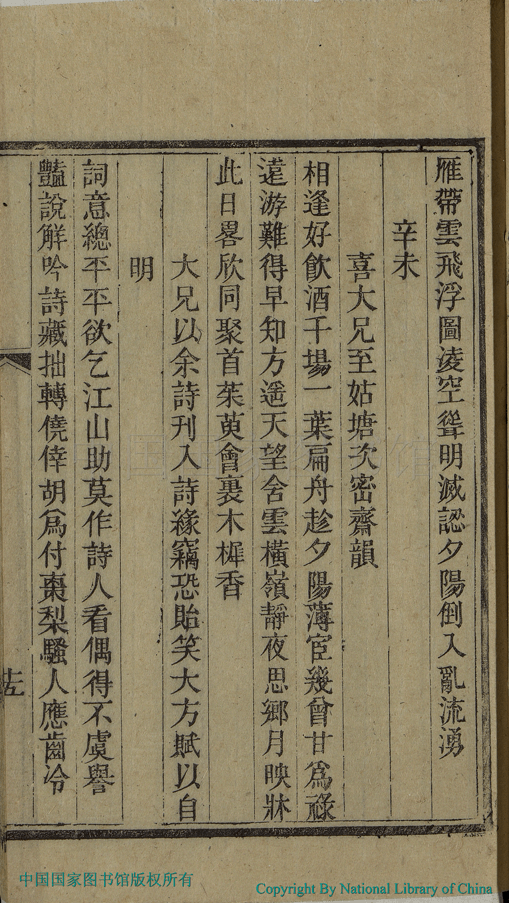 雁帶雲飛浮圖淩空聳明滅認夕陽倒入亂流湧
辛未
喜大兄至姑塘次密齋韻
相逢好飲酒千場一葉扁舟趁夕陽薄宦幾曾甘為祿
遠游難得早知方遥天望舍雲橫嶺靜夜思鄉月映牀
此日畧欣同聚首茱萸會裏木樨香
大兄以余詩刊入詩緣竊恐貽笑大方賦以自
明
詞意總平平欲乞江山助莫作詩人看偶得不虞譽
豔說解吟詩藏拙轉僥倖胡爲付棗梨騷人應齒冷
中国国家图书馆版权所有
Copyright By National Library of China